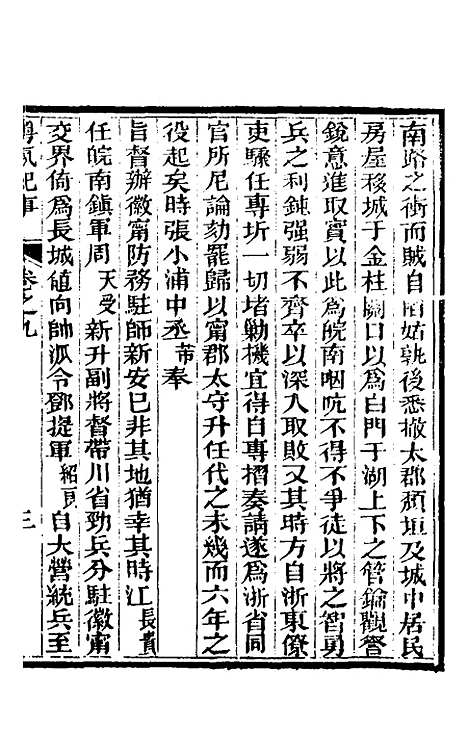 南路之衝而賊自陷姑孰後悉撤太郡頹垣及城中居民
房屋移城于金柱關口以爲白門于湖上下之管鑰觀詧
鋭意進取實以此爲皖南咽吭不得不爭徒以將之智勇
兵之利鈍强弱不齊卒以深入取敗又其時方自浙東僚
吏驟任專圻一切堵勦機宜得自專摺奏請遂爲浙省同
官所尼論劾罷歸以甯郡太守升任代之未幾而六年之
役起矣時張小浦中丞芾奉
旨督辦徽甯防務駐師新安已非其地猶幸其時江長貴
任皖南鎭軍周天受新升副將督帶川省勁兵分駐徽甯
交界倚爲長城値向帥派令鄧提軍紹良自大營統兵至
粵氛紀事
卷之九
三